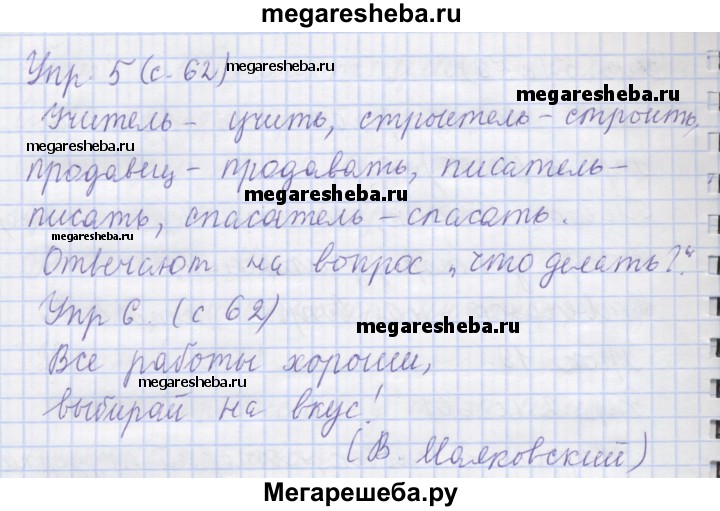 megaresheba.ru
Упр. 5 (с. 62) megaresheba.ru
megaresheba.ru
Учитель – учить, строитель – строить,
megaresheba.ru
продавец – продавать, писатель –
megaresheba.ru
писать, спасатель – спасать.
megaresheba.ru
Отвечают на вопрос „что делать?“.
Упр 6. (с 62)
megaresheba.ru
Все работы хороши,
megaresheba.ru
выбирай на вкус!
(В. Маяковский)
Мегарешеба.ру